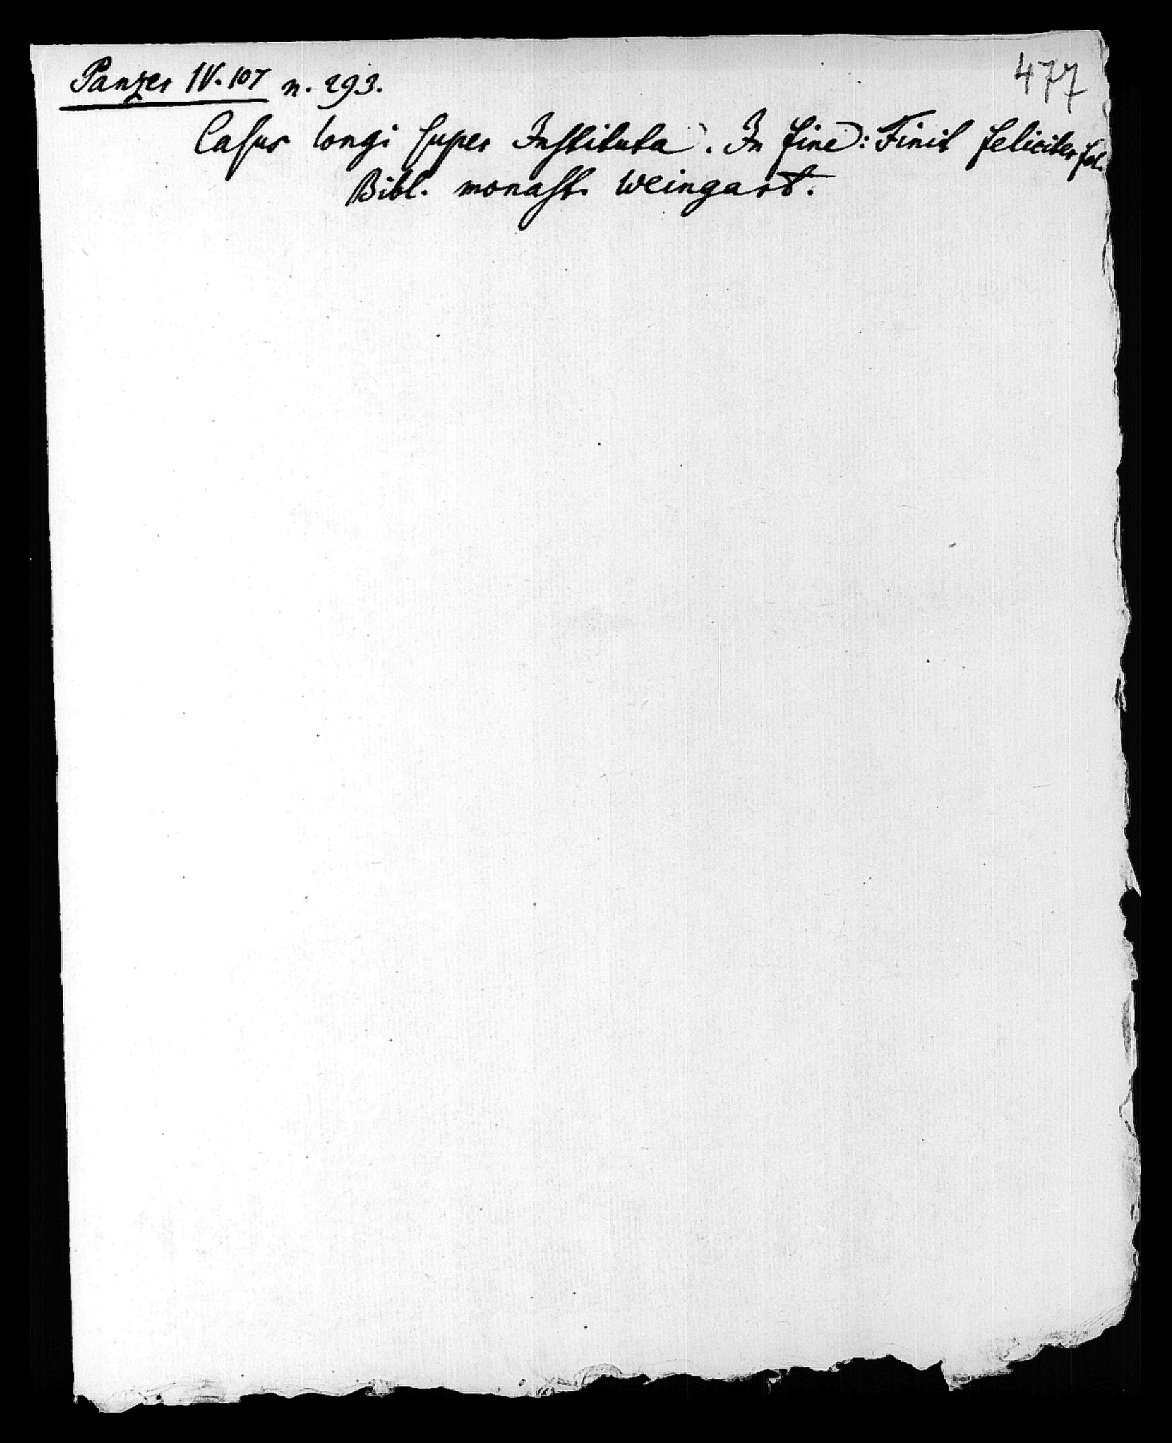 Panzer IV. 107 n. 293.
477
Casus longi super Instituta. In fine: Finit feliciter fol.
Bibl. monast. Weingart.